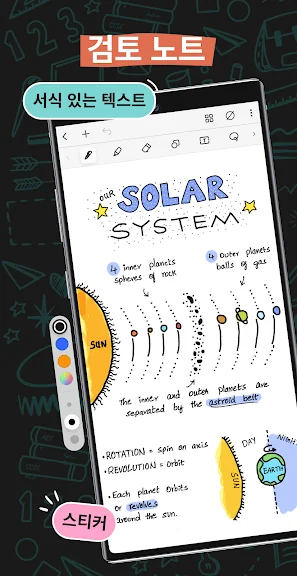 검토 노트
서식 있는 텍스트
OUR
SOLAR
SYSTEM
4 inner planets
spheres of rock
4 outer planets
balls of gas
SUN
The inner and outer planets are
separated by the astroid belt
•ROTATION = spin on axis
•REVOLUTION = orbit
•Each planet orbits
or revolves
around the sun.
SUN
DAY
EARTH
스티커